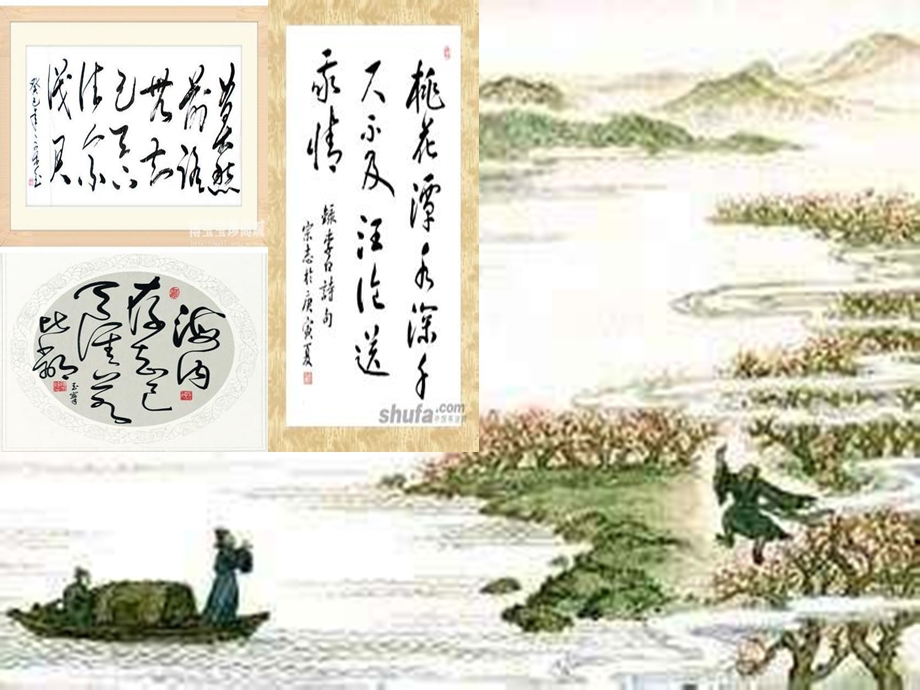 莫愁
前路
無知
己天下
誰人不
識君
癸巳年
桃花潭水深千
尺不及汪伦送
我情
録李白詩句
宗志於庚寅夏
shufa.com
海内
存知己
天涯若
比鄰